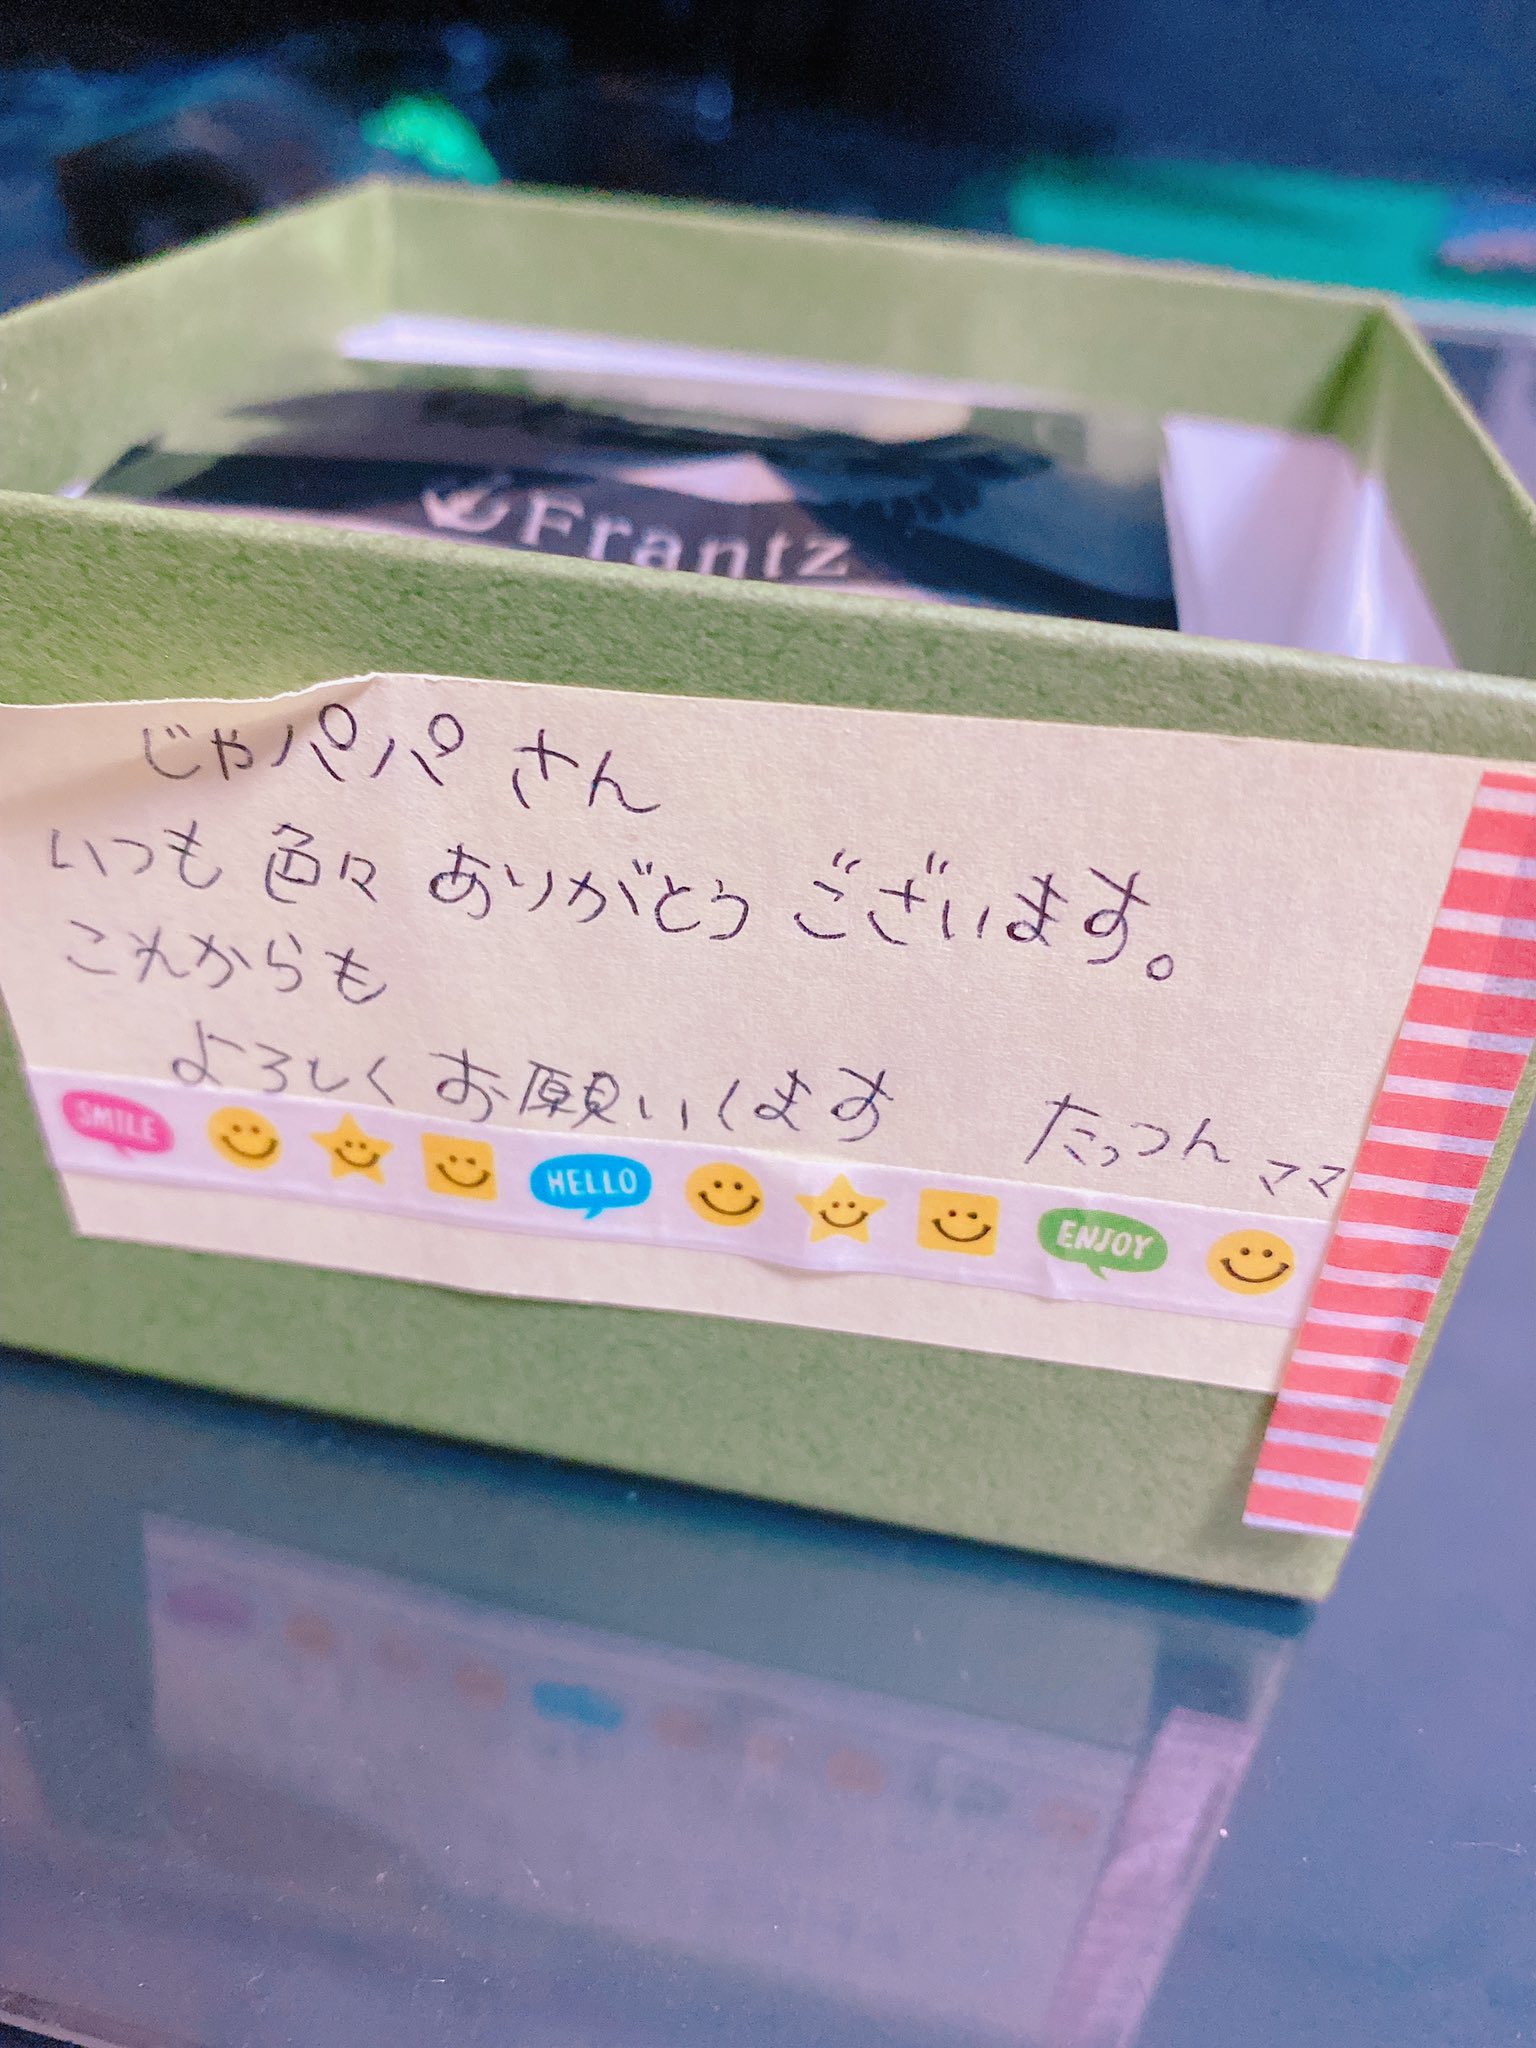 Frantz
じゃパパ さん
いつも 色々 ありがとう ございます。
これからも
よろしく お願いします
たっつん ママ
SMILE HELLO ENJOY